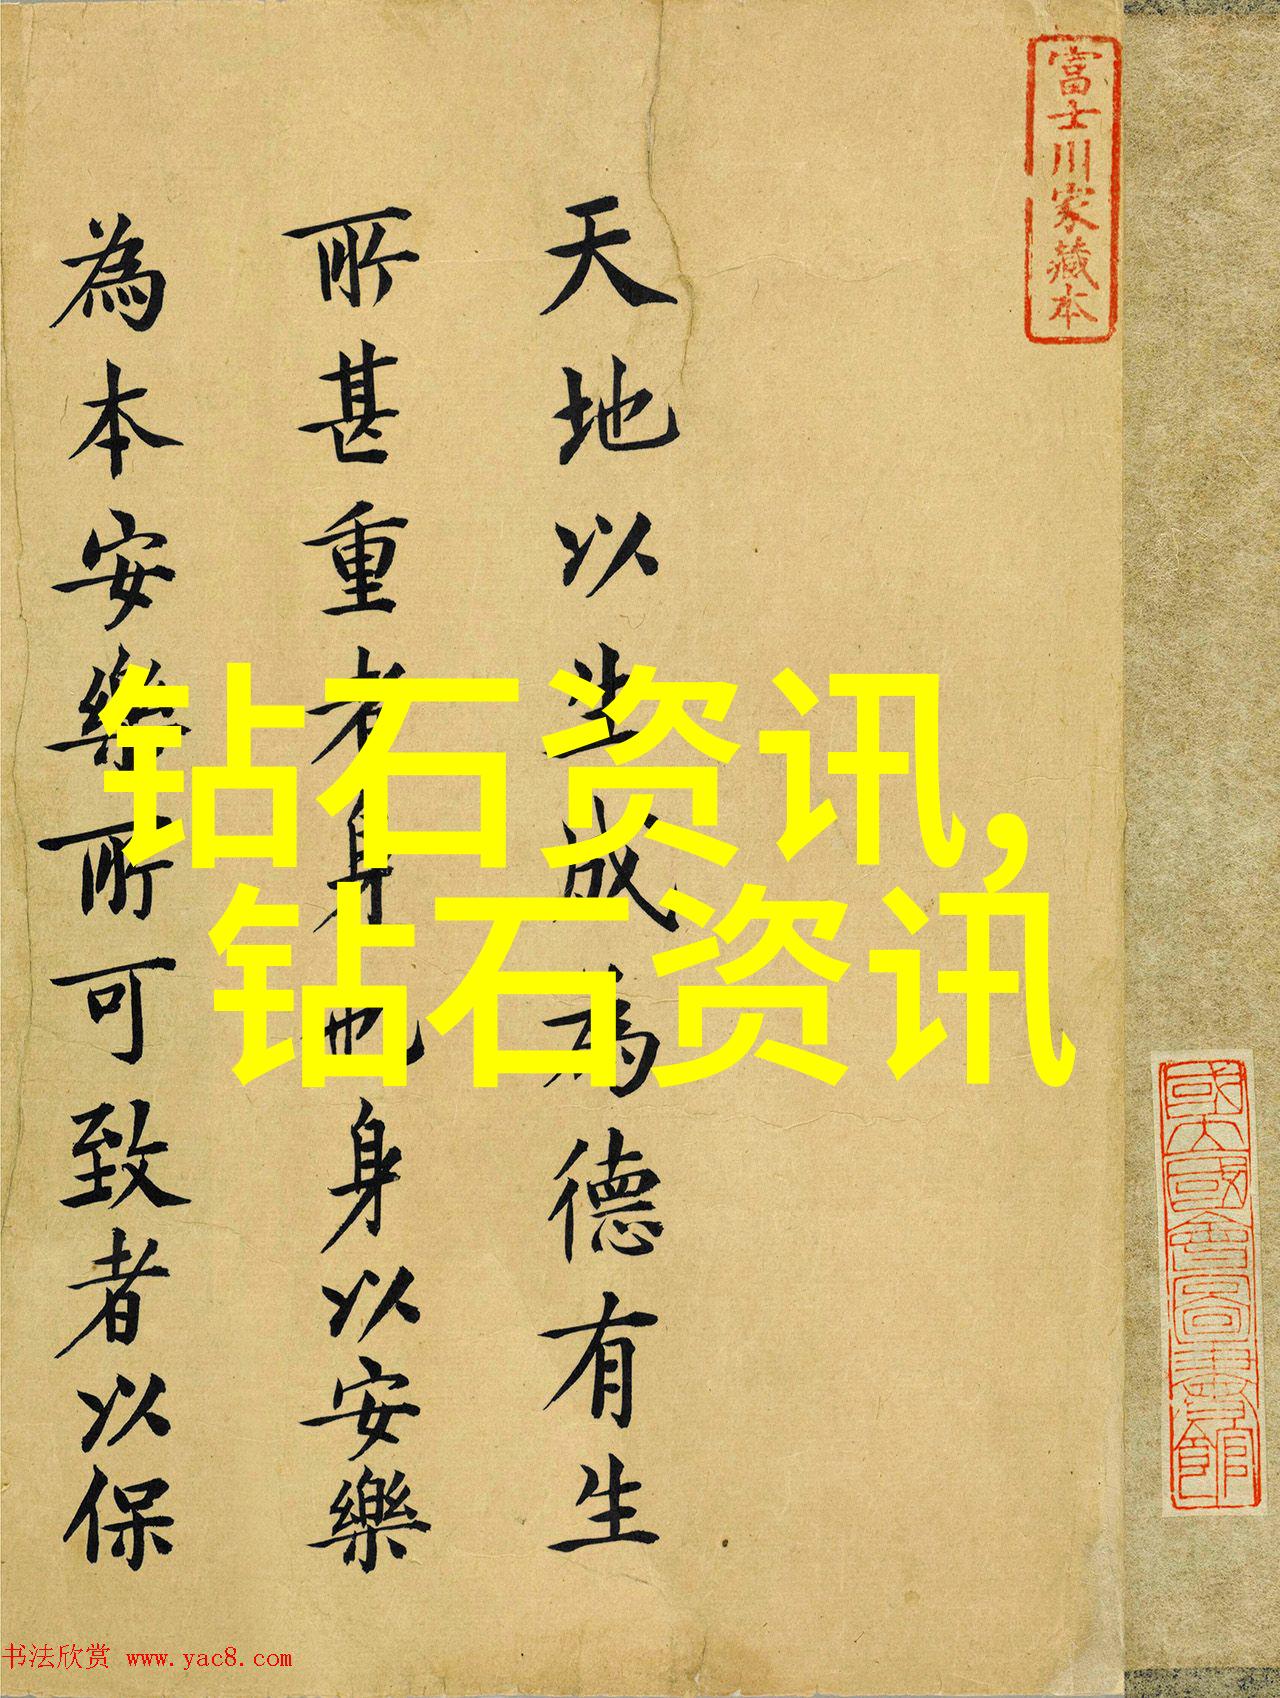 富士川家藏本
天地以生成為德有生
所甚重者身也身以安樂
為本安樂所可致者以保
钻石资讯,
钻石资讯
國立國會圖書館
书法欣赏 www.yac8.com